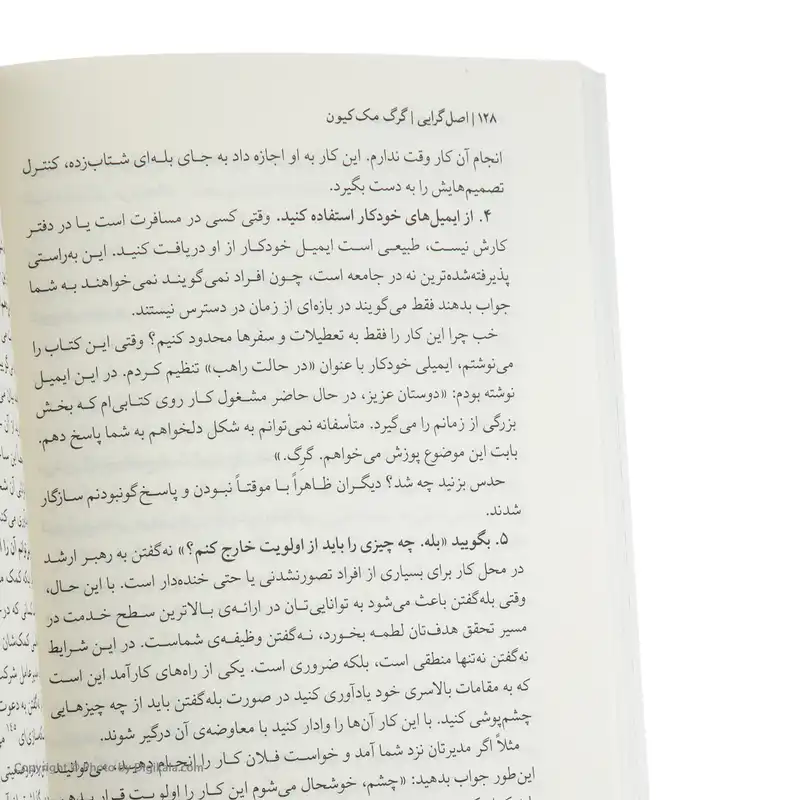 ۱۲۸ | اصل‌گرایی | گرگ مک‌کیون
انجام آن کار وقت ندارم. این کار به او اجازه داد به جای بله‌ای شتاب‌زده، کنترل
تصمیم‌هایش را به دست بگیرد.
۴. از ایمیل‌های خودکار استفاده کنید. وقتی کسی در مسافرت است یا در دفتر
کارش نیست، طبیعی است ایمیل خودکار از او دریافت کنید. این به‌راستی
پذیرفته‌شده‌ترین نه در جامعه است، چون افراد نمی‌گویند نمی‌خواهند به شما
جواب بدهند فقط می‌گویند در بازه‌ای از زمان در دسترس نیستند.
خب چرا این کار را فقط به تعطیلات و سفرها محدود کنیم؟ وقتی این کتاب را
می‌نوشتم، ایمیلی خودکار با عنوان «در حالت راهب» تنظیم کردم. در این ایمیل
نوشته بودم: «دوستان عزیز، در حال حاضر مشغول کار روی کتابی‌ام که بخش
بزرگی از زمانم را می‌گیرد. متأسفانه نمی‌توانم به شکل دلخواهم به شما پاسخ دهم.
بابت این موضوع پوزش می‌خواهم. گرگ.»
حدس بزنید چه شد؟ دیگران ظاهراً با موقتاً نبودن و پاسخ‌گونبودنم سازگار
شدند.
۵. بگویید «بله. چه چیزی را باید از اولویت خارج کنم؟» نه‌گفتن به رهبر ارشد
در محل کار برای بسیاری از افراد تصورنشدنی یا حتی خنده‌دار است. با این حال،
وقتی بله‌گفتن باعث می‌شود به توانایی‌تان در ارائه‌ی بالاترین سطح خدمت در
مسیر تحقق هدف‌تان لطمه بخورد، نه‌گفتن وظیفه‌ی شماست. در این شرایط
نه‌گفتن نه‌تنها منطقی است، بلکه ضروری است. یکی از راه‌های کارآمد این است
که به مقامات بالاسری خود یادآوری کنید در صورت بله‌گفتن باید از چه چیزهایی
چشم‌پوشی کنید. با این کار آن‌ها را وادار کنید با معاوضه‌ی آن درگیر شوند.
مثلاً اگر مدیرتان نزد شما آمد و خواست فلان کار را انجام دهید، می‌توانید
این‌طور جواب بدهید: «چشم، خوشحال می‌شوم این کار را اولویت قرار بدهم
Copyright © Photo by Digikala.com